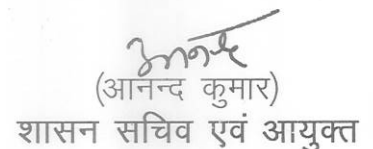 आनन्द
(आनन्द कुमार)
शासन सचिव एवं आयुक्त